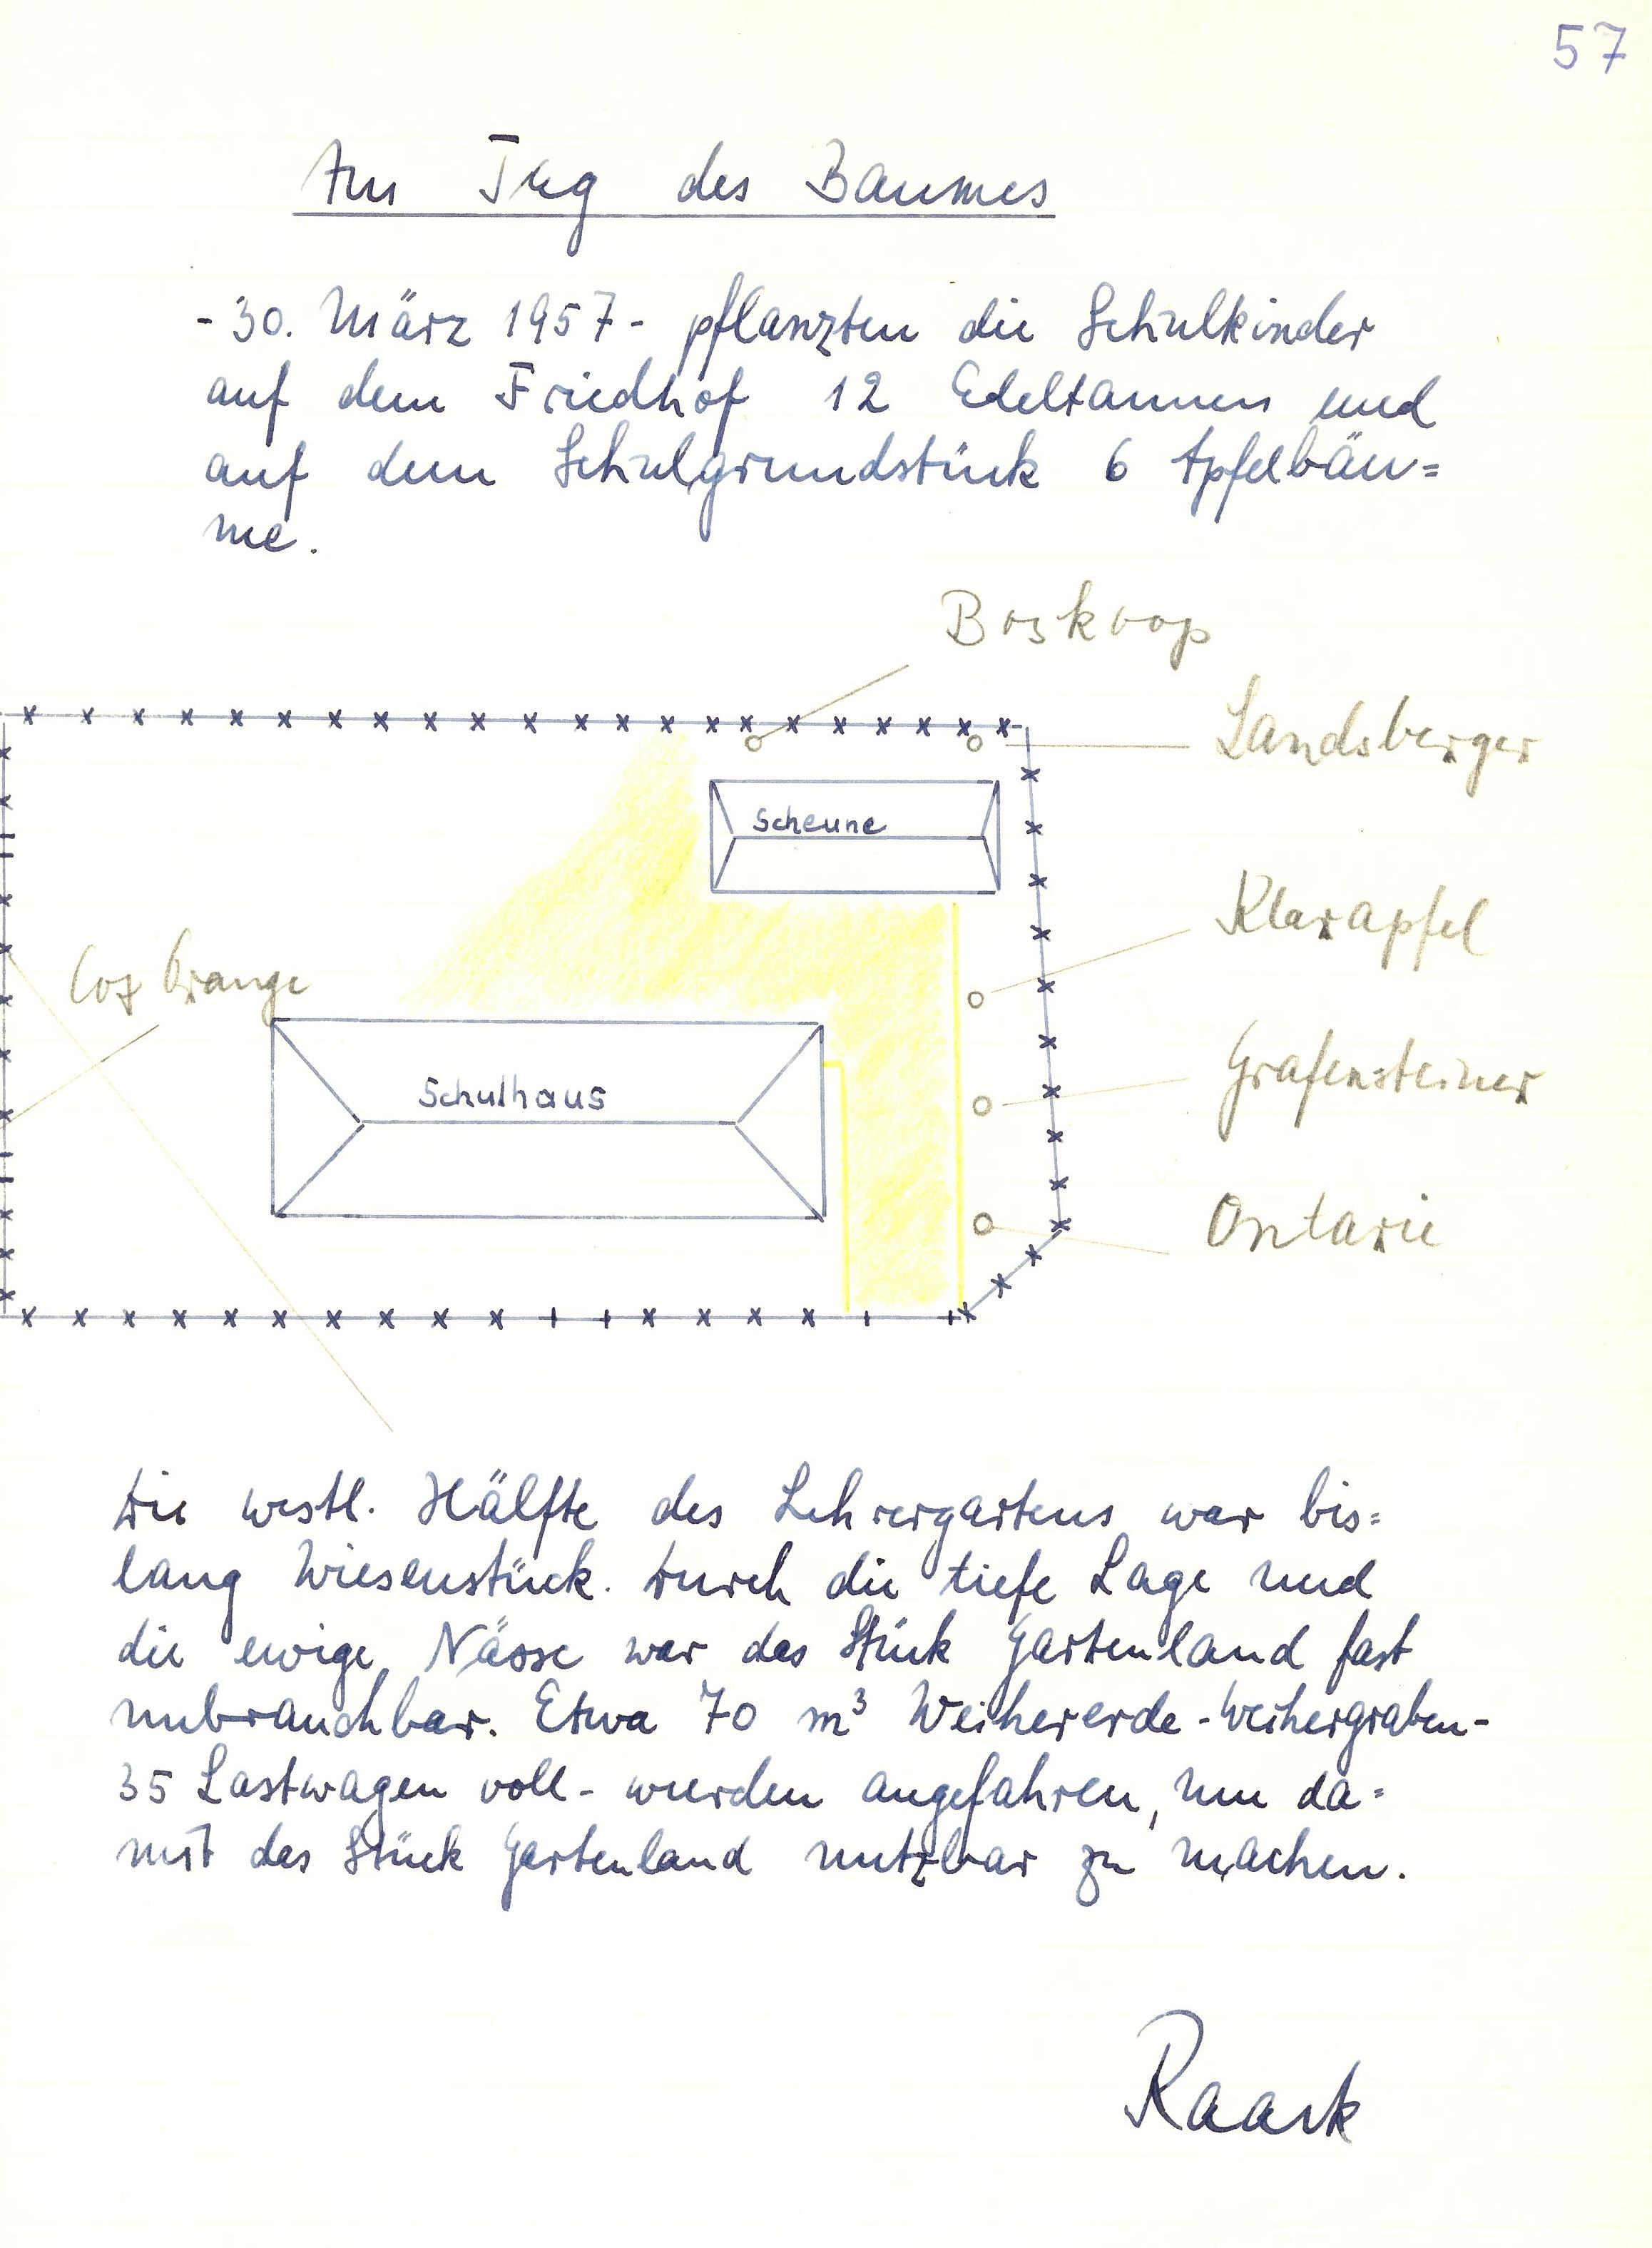 57
Am Tag des Baumes
- 30. März 1957 - pflanzten die Schulkinder
auf dem Friedhof 12 Edeltannen und
auf dem Schulgrundstück 6 Apfelbäu=
me.
Boskoop
Landsberger
Scheune
Klarapfel
Cox Orange
Grafensteiner
Schulhaus
Ontarie
Die westl. Hälfte des Lehrergartens war bis=
lang Wiesenstück. Durch die tiefe Lage und
die ewige Nässe war das Stück Gartenland fast
unbrauchbar. Etwa 70 m³ Weihererde - Weihergraben -
35 Lastwagen voll - wurden angefahren, um da=
mit das Stück Gartenland nutzbar zu machen.
Raask